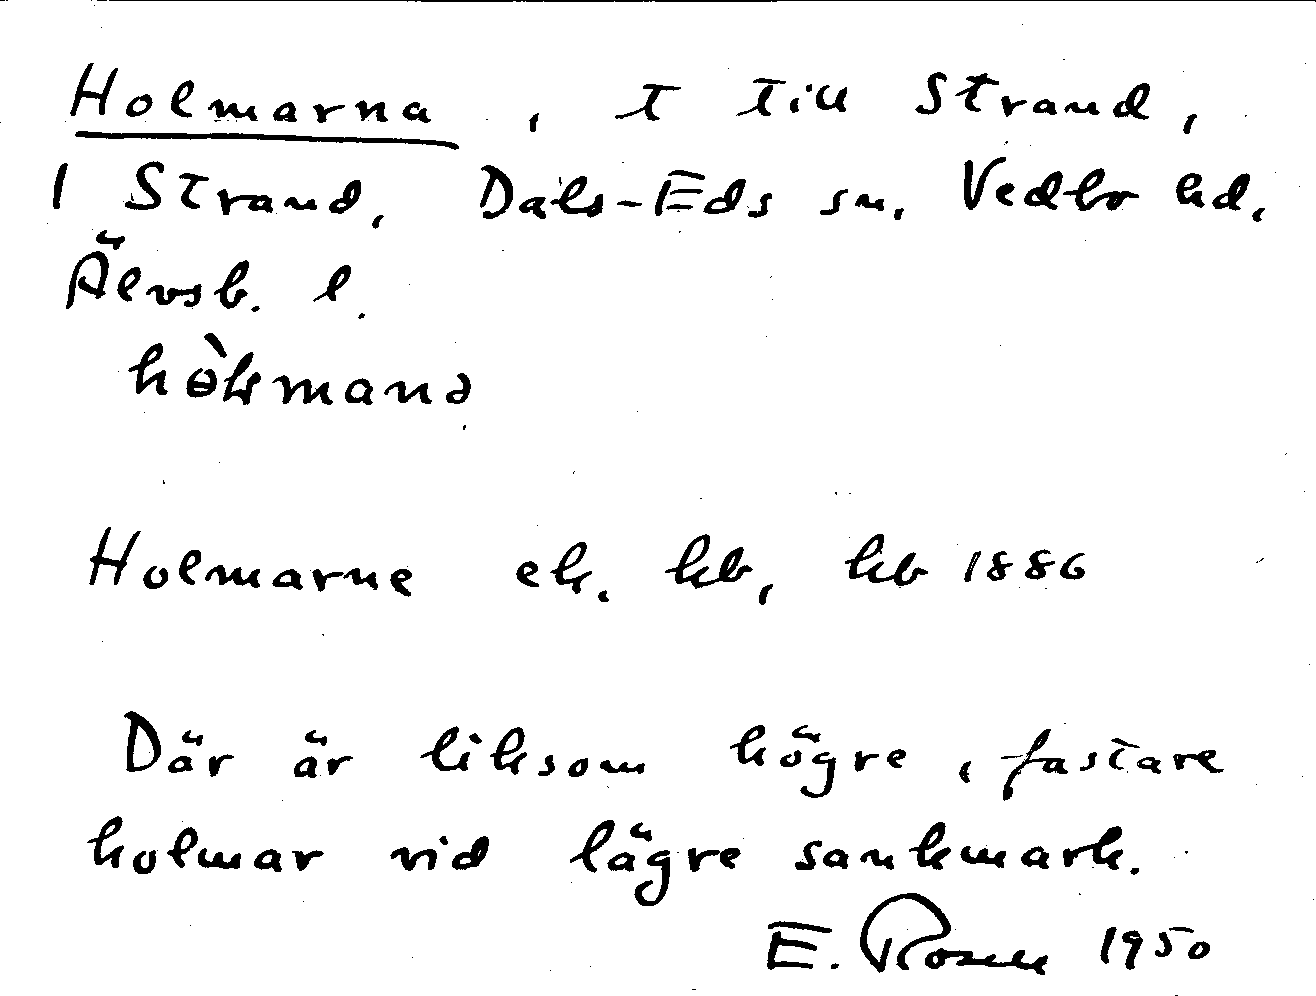 Holmarna, t till Strand,
1 Strand, Dals-Eds sn. Vedbo hd.
Älvsb. l.
hòɬmanə
Holmarne ek. kb, kb 1886
Där är liksom högre, fastare
holmar vid lägre sankmark.
E. Rosell 1950